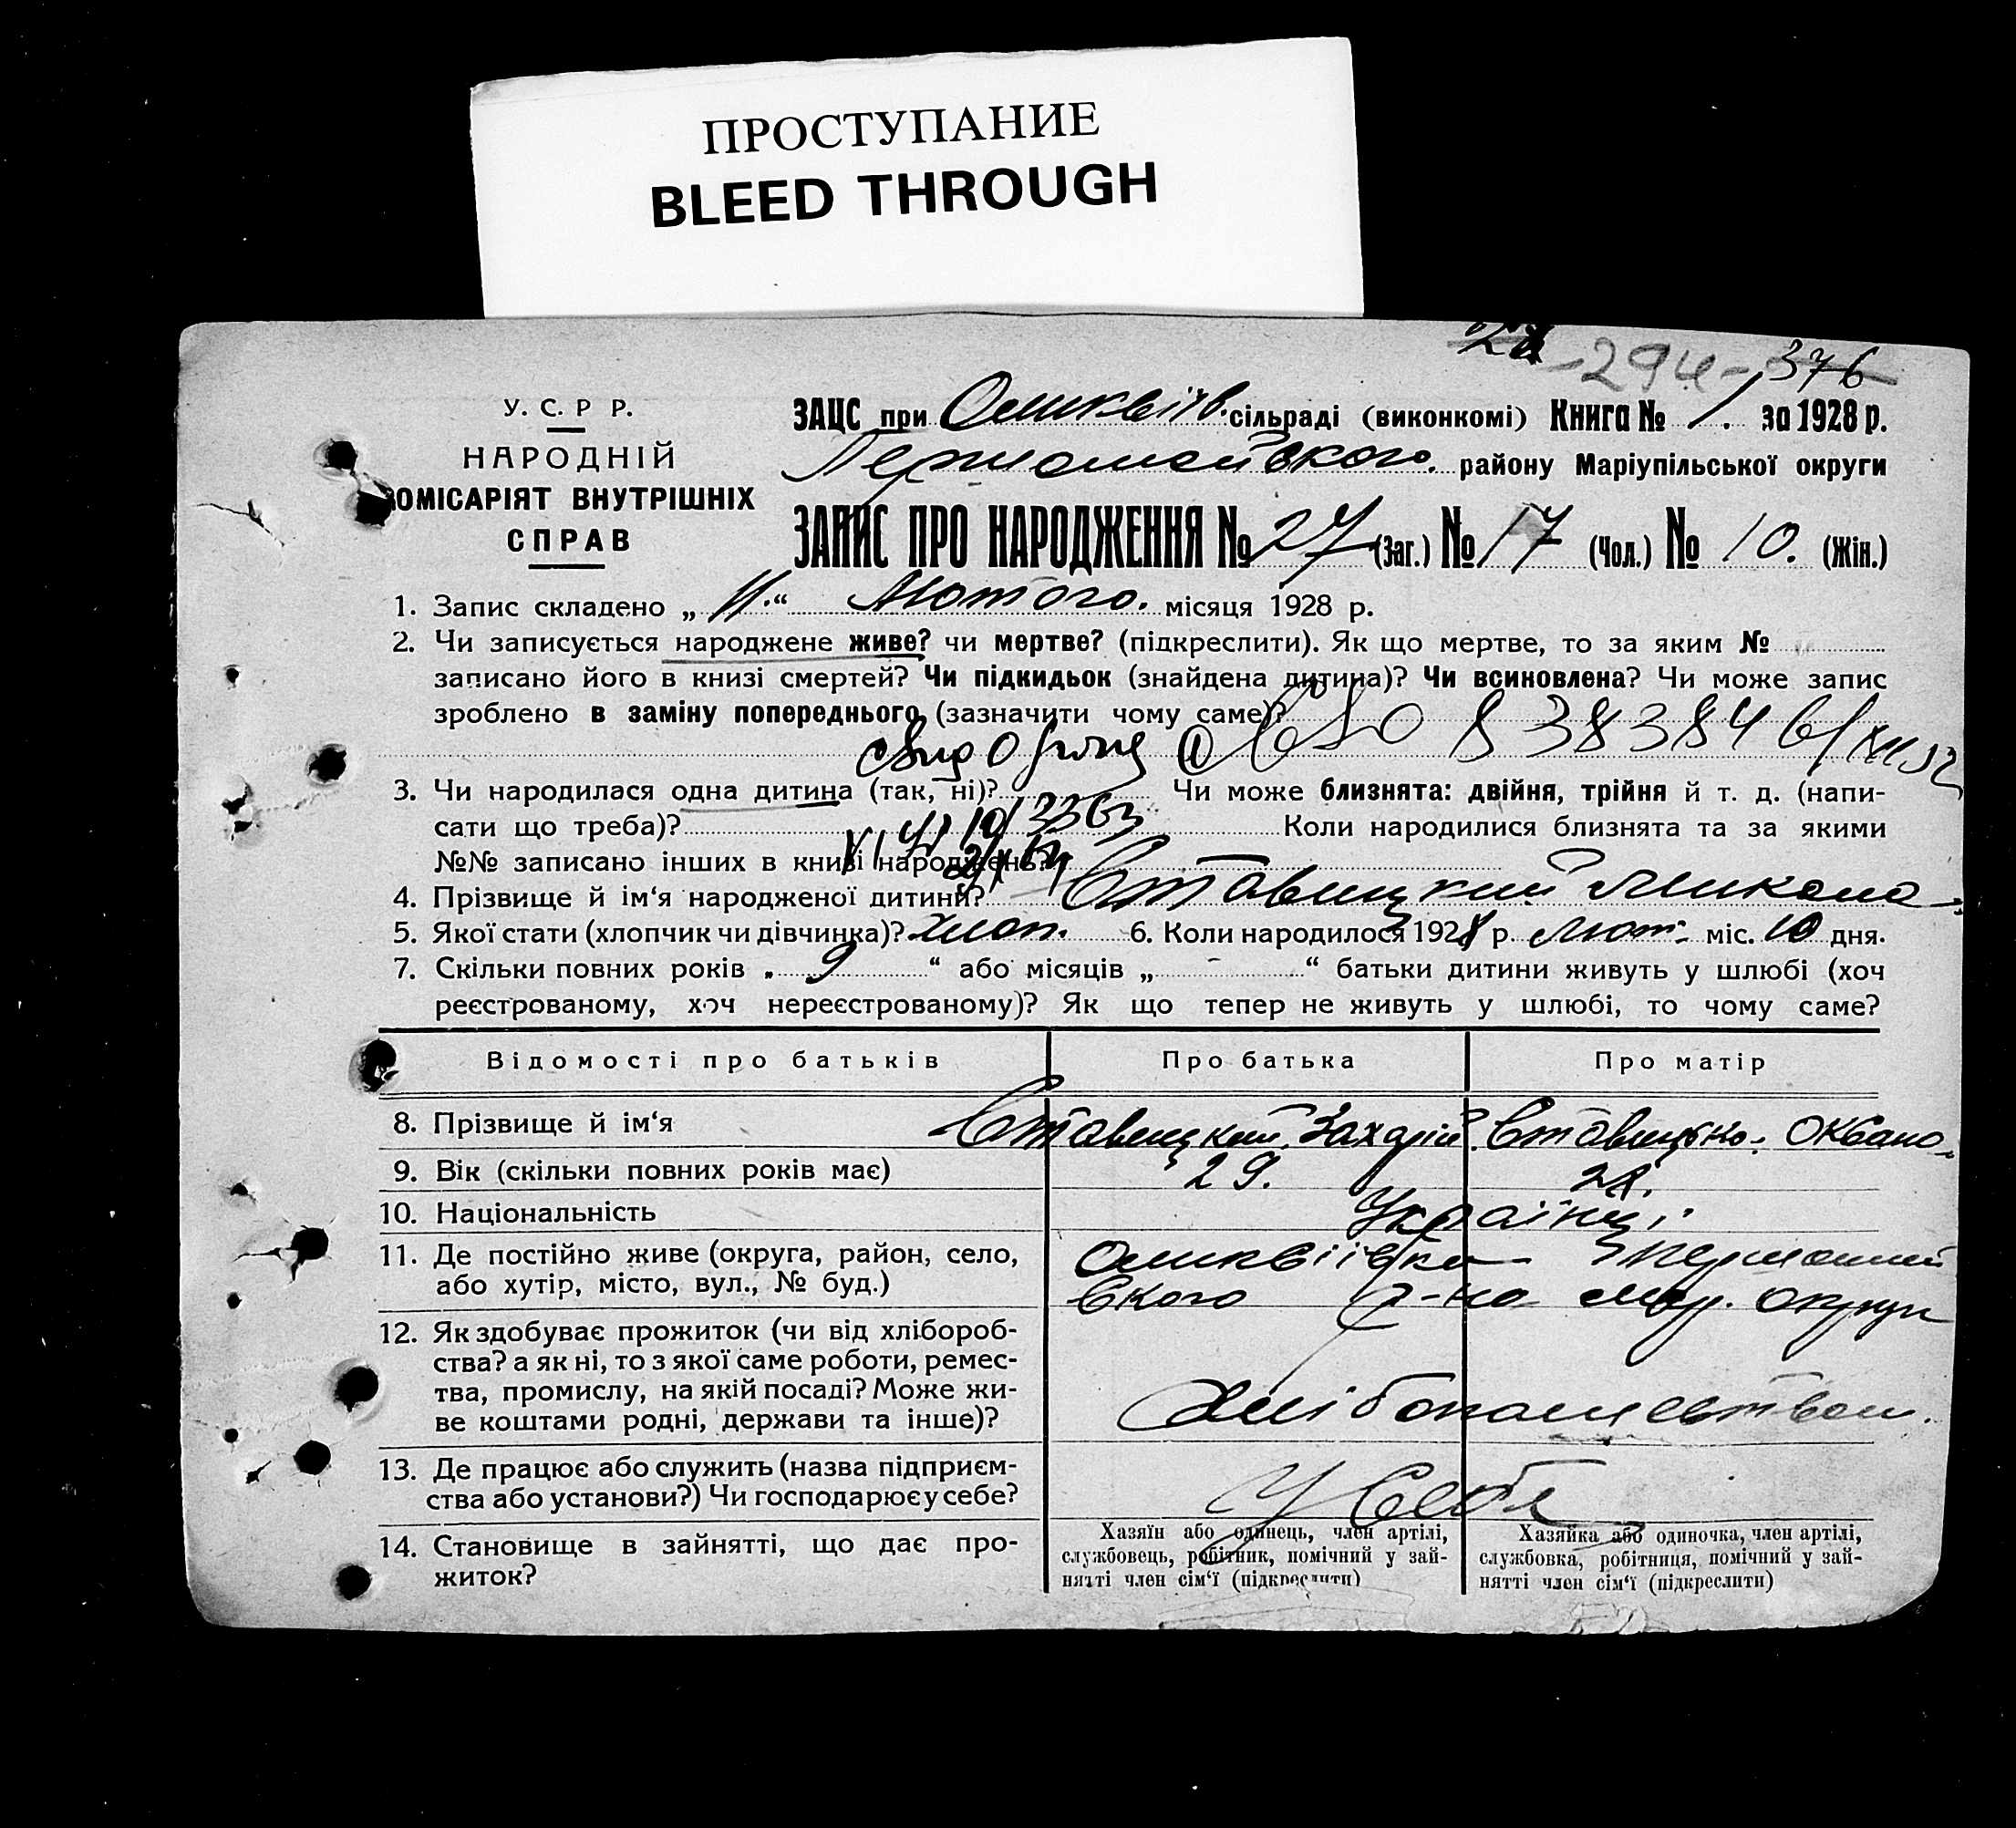 ПРОСТУПАНИЕ
BLEED THROUGH
294 376
У. С. Р Р.
НАРОДНІЙ
КОМІСАРІЯТ ВНУТРІШНІХ
СПРАВ
ЗАЦС при сільраді (виконкомі) Книга № 1. за 1928 р.
Першомайського. району Маріупільської округи
ЗАПИС ПРО НАРОДЖЕННЯ № 27 (Заг.) № 17 (Чол.) № 10. (Жін.)
1. Запис складено „ 11. “ Лютого. місяця 1928 р.
2. Чи записується народжене живе? чи мертве? (підкреслити). Як що мертве, то за яким №
записано його в книзі смертей? Чи підкидьок (знайдена дитина)? Чи всиновлена? Чи може запис
зроблено в заміну попереднього (зазначити чому саме)?
838384
3. Чи народилася одна дитина (так, ні)? Чи може близнята: двійня, трійня й т. д. (напи-
сати що треба)? Коли народилися близнята та за якими
№№ записано інших в книзі народжень?
4. Прізвище й ім‘я народженої дитини? Ставицкий Микола
5. Якої стати (хлопчик чи дівчинка)? хлоп. 6. Коли народилося 1928 р. Лют. міс. 10 дня.
7. Скільки повних років „ 9 “ або місяців „ - “ батьки дитини живуть у шлюбі (хоч
реєстрованому, хоч нереєстрованому)? Як що тепер не живуть у шлюбі, то чому саме?
Відомості про батьків Про батька Про матір
8. Прізвище й ім‘я Ставицкий Захарій Ставицька
9. Вік (скільки повних років має) 29. 28.
10. Національність Українці
11. Де постійно живе (округа, район, село, Першомай
або хутір, місто, вул., № буд.) ского р-на Мар. округи
12. Як здобуває прожиток (чи від хлібороб-
ства? а як ні, то з якої саме роботи, ремес-
тва, промислу, на якій посаді? Може жи-
ве коштами родні, держави та інше)? Хлібопашеством.
13. Де працює або служить (назва підприєм-
ства або установи?) Чи господарює у себе? У себе
14. Становище в зайнятті, що дає про-
житок?
Хазяїн або одинець, член артілі,
службовець, робітник, помічний у зай-
нятті член сім‘ї (підкреслити)
Хазяйка або одиночка, член артілі,
службовка, робітниця, помічний у зай-
нятті член сім‘ї (підкреслити)